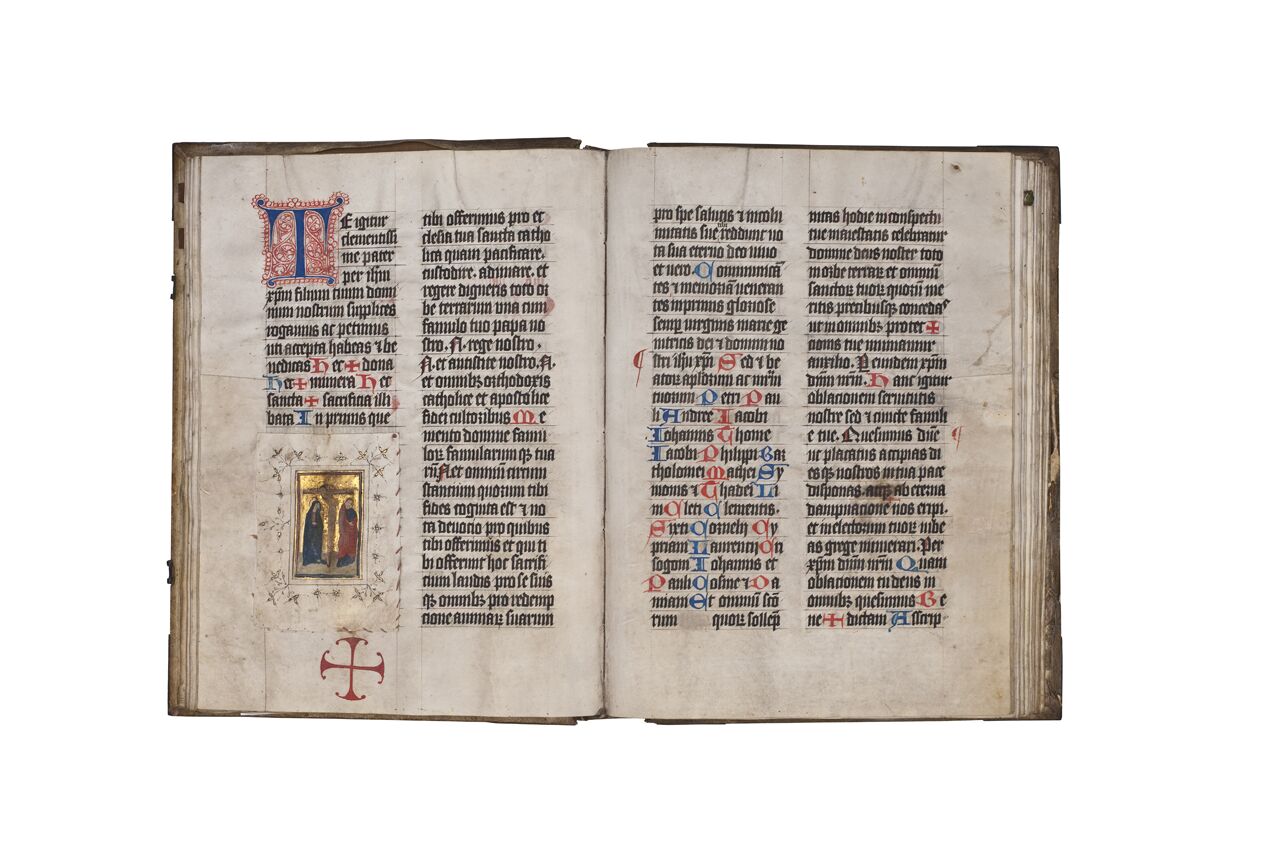 TE igitur
clementissi
me pater
per ihm
xpm filium tuum domi
num nostrum supplices
rogamus ac petimus
uti accepta habeas et be
nedicas hec + dona
hec + munera hec
sancta + sacrificia illi
bata In primis que
tibi offerimus pro ec
clesia tua sancta catho
lica quam pacificare.
custodire. adunare. et
regere digneris toto or
be terrarum una cum
famulo tuo papa no
stro .N. rege nostro.
.N. et antistite nostro .N.
et omnibus orthodoxis
catholice et apostolice
fidei cultoribus Me
mento domine famu
lorum famularum que tua
rum N et omnium circum
stantium quorum tibi
fides cognita est et no
ta devocio pro quibus
tibi offerimus et qui ti
bi offerunt hoc sacrifi
cium laudis pro se suis
que omnibus pro redemp
cione animarum suarum
pro spe salutis et incolu
mitatis sue tibi reddunt vo
ta sua eterno deo vivo
et vero Communican
tes et memoriam veneran
tes inprimis gloriose
semper virginis marie ge
nitricis dei et domini no
stri ihu xpi Sed et be
atorum apostolorum ac martirum
tuorum Petri Pau
li Andree Iacobi
Iohannis Thome
Iacobi Philippi Bar
tholomei Mathei Sy
monis et Thadei Li
ni Cleti Clementis.
Sixti Cornelii Cy
priani Laurencii Cri
sogoni Iohannis et
Pauli Cosme et Da
miani Et omnium sanctorum
tuorum quorum sollemp
nitas hodie in conspectu
tue maiestatis celebratur
domine deus noster toto
in orbe terrarum et omnium
sanctorum tuorum quorum me
ritis precibusque concedas
ut in omnibus protec +
cionis tue muniamur
auxilio. Per eundem xpm
dnm nrm. Hanc igitur
oblacionem servitutis
nostre sed et cuncte famili
e tue. Quesumus dne
ut placatus accipias di
es que nostros in tua pace
disponas. atque ab eterna
dampnacione nos eripi.
et in electorum tuorum iube
as grege numerari. Per
xpm dnm nrm Quam
oblacionem tu deus in
omnibus quesumus Be
ne + dictam Ascrip